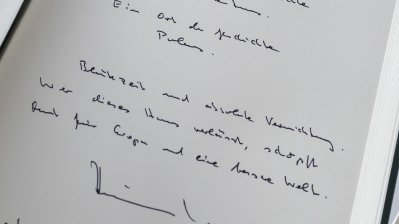 Ein Ort der Geschichte
Polens.
Blütezeit und absolute Vernichtung.
Wer dieses Haus verlässt, schöpft
Mut für Europa und eine bessere Welt.